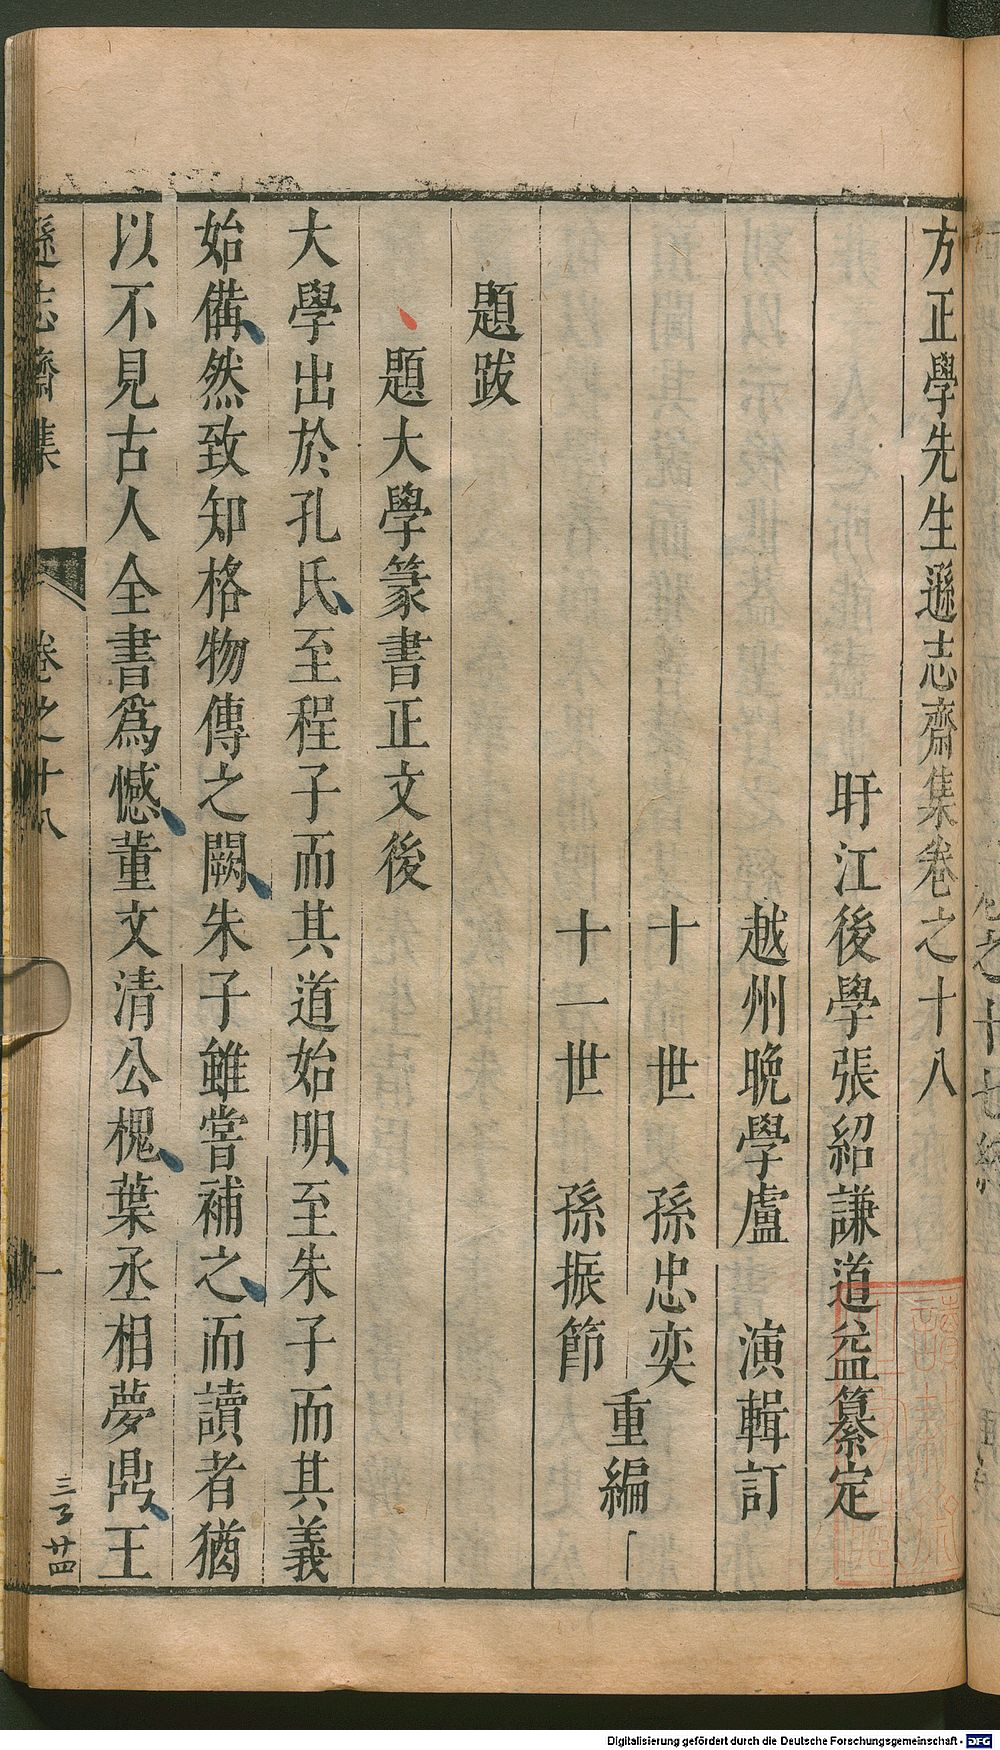 方正學先生遜志齋集卷之十八
盱江後學張紹謙道益纂定
越州晚學盧 演輯訂
十世 孫忠奕
十一世 孫振節
重編
題跋
題大學篆書正文後
大學出於孔氏至程子而其道始明至朱子而其義
始備然致知格物傳之闕朱子雖嘗補之而讀者猶
以不見古人全書爲憾董文清公槐葉丞相夢鼎王
遜志齋集 卷之十八 一
Digitalisierung gefördert durch die Deutsche Forschungsgemeinschaft - DFG